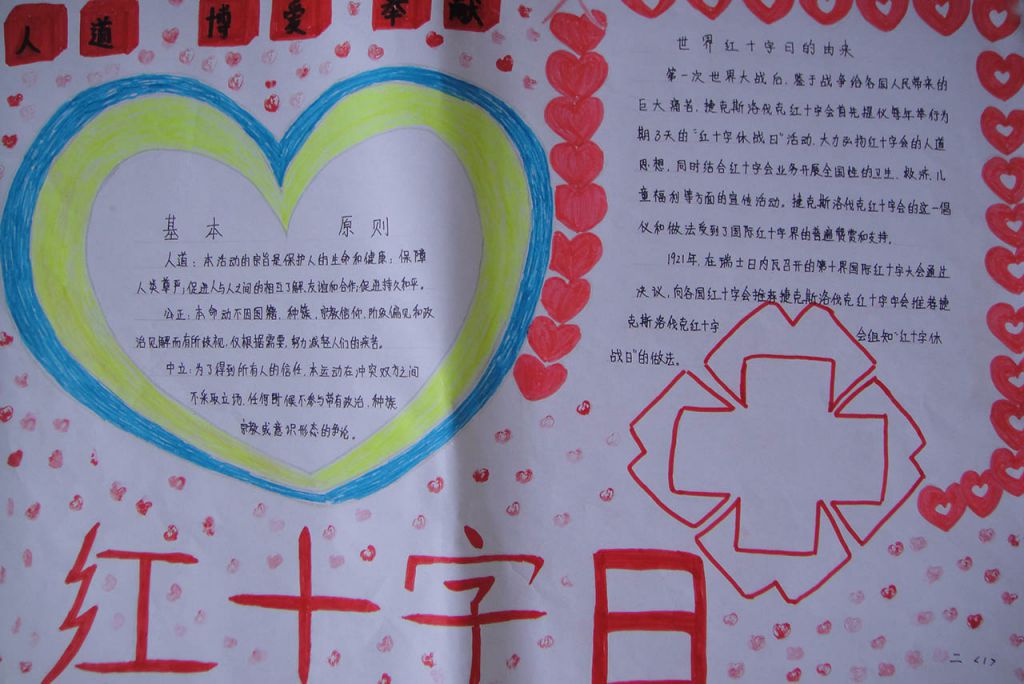 人道 博爱 奉献
基本 原则
人道：本活动的宗旨是保护人的生命和健康；保障
人类尊严；促进人与人之间的相互了解、友谊和合作；促进持久和平。
公正：本命动不因国籍、种族、宗教信仰、阶级偏见和政
治见解而有所歧视，仅根据需要，努力减轻人们的疾苦。
中立：为了得到所有人的信任，本运动在冲突双方之间
不采取立场，任何时候不参与带有政治、种族
宗教或意识形态的争论。
世界红十字日的由来
第一次世界大战后，鉴于战争给各国人民带来的
巨大痛苦，捷克斯洛伐克红十字会首先提仪每年举行为
期3天的“红十字休战日”活动，大力弘扬红十字会的人道
思想，同时结合红十字会业务开展全国性的卫生、救济、儿
童福利等方面的宣传活动。捷克斯洛伐克红十字会的这一倡
仪和做法受到了国际红十字界的普遍赞赏和支持。
1921年，在瑞士日内瓦召开的第十界国际红十字大会通过
决议，向各国红十字会推荐捷克斯洛伐克红十字会推荐捷
克斯洛伐克红十字 会组知“红十字休
战日”的做法。
红十字日
二<1>